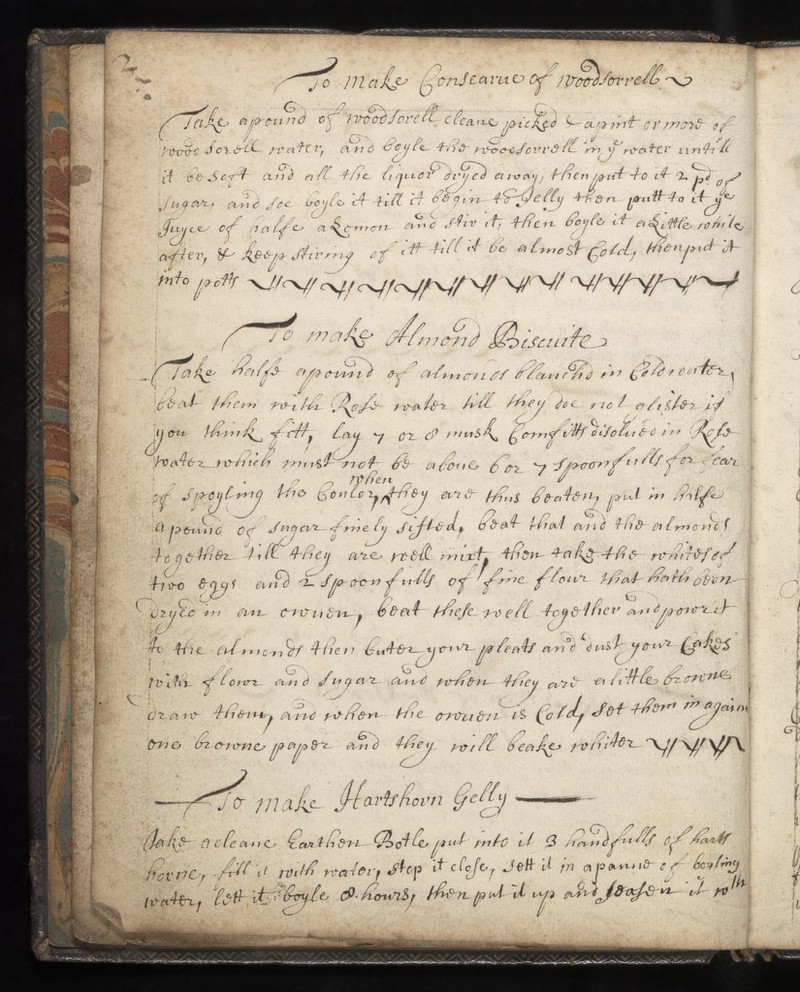 2
To make Conscarue of woodsorrell
Take a pound of woodsorell cleane picked & a pint or more of
wood sorell water, and boyle the woodsorrell in ye water untill
it be Soft and all the liquor dryed away, then put to it 2 pd of
Sugar, and soe boyle it till it begin to Jelly then putt to it ye
Juyce of halfe a Lemon and stir it, then boyle it a little while
after, & keep stiring of itt till it be almost Cold, then put it
into potts
To make Almond Biscuite
Take halfe a pound of almonds blanched in Cold water,
beat them with Rose water till they doe not glister if
you think fitt, lay 7 or 8 musk Comfitts disolued in Rose
water which must not be aboue 6 or 7 spoonfulls for fear
of spoyling the Coulor, when they are thus beaten, put in halfe
a pound of Sugar finely sifted, beat that and the almonds
together till they are well mixt, then take the whites of
two eggs and 2 spoonfulls of fine flour that hath been
dryed in an owuen, beat these well together and powr it
to the almonds then buter your pleats and dust your Cakes
with flowr and Sugar and when they are a little browne
draw them, and when the owuen is Cold, set them in again
one browne paper and they will beake whiter
To make Hartshorn Gelly
Take a cleane Earthen Botle put into it 3 handfulls of harts
horne, fill it with water, stop it close, sett it in a panne of boyling
water, lett it boyle 8 hours, then put it up and seasen it wth